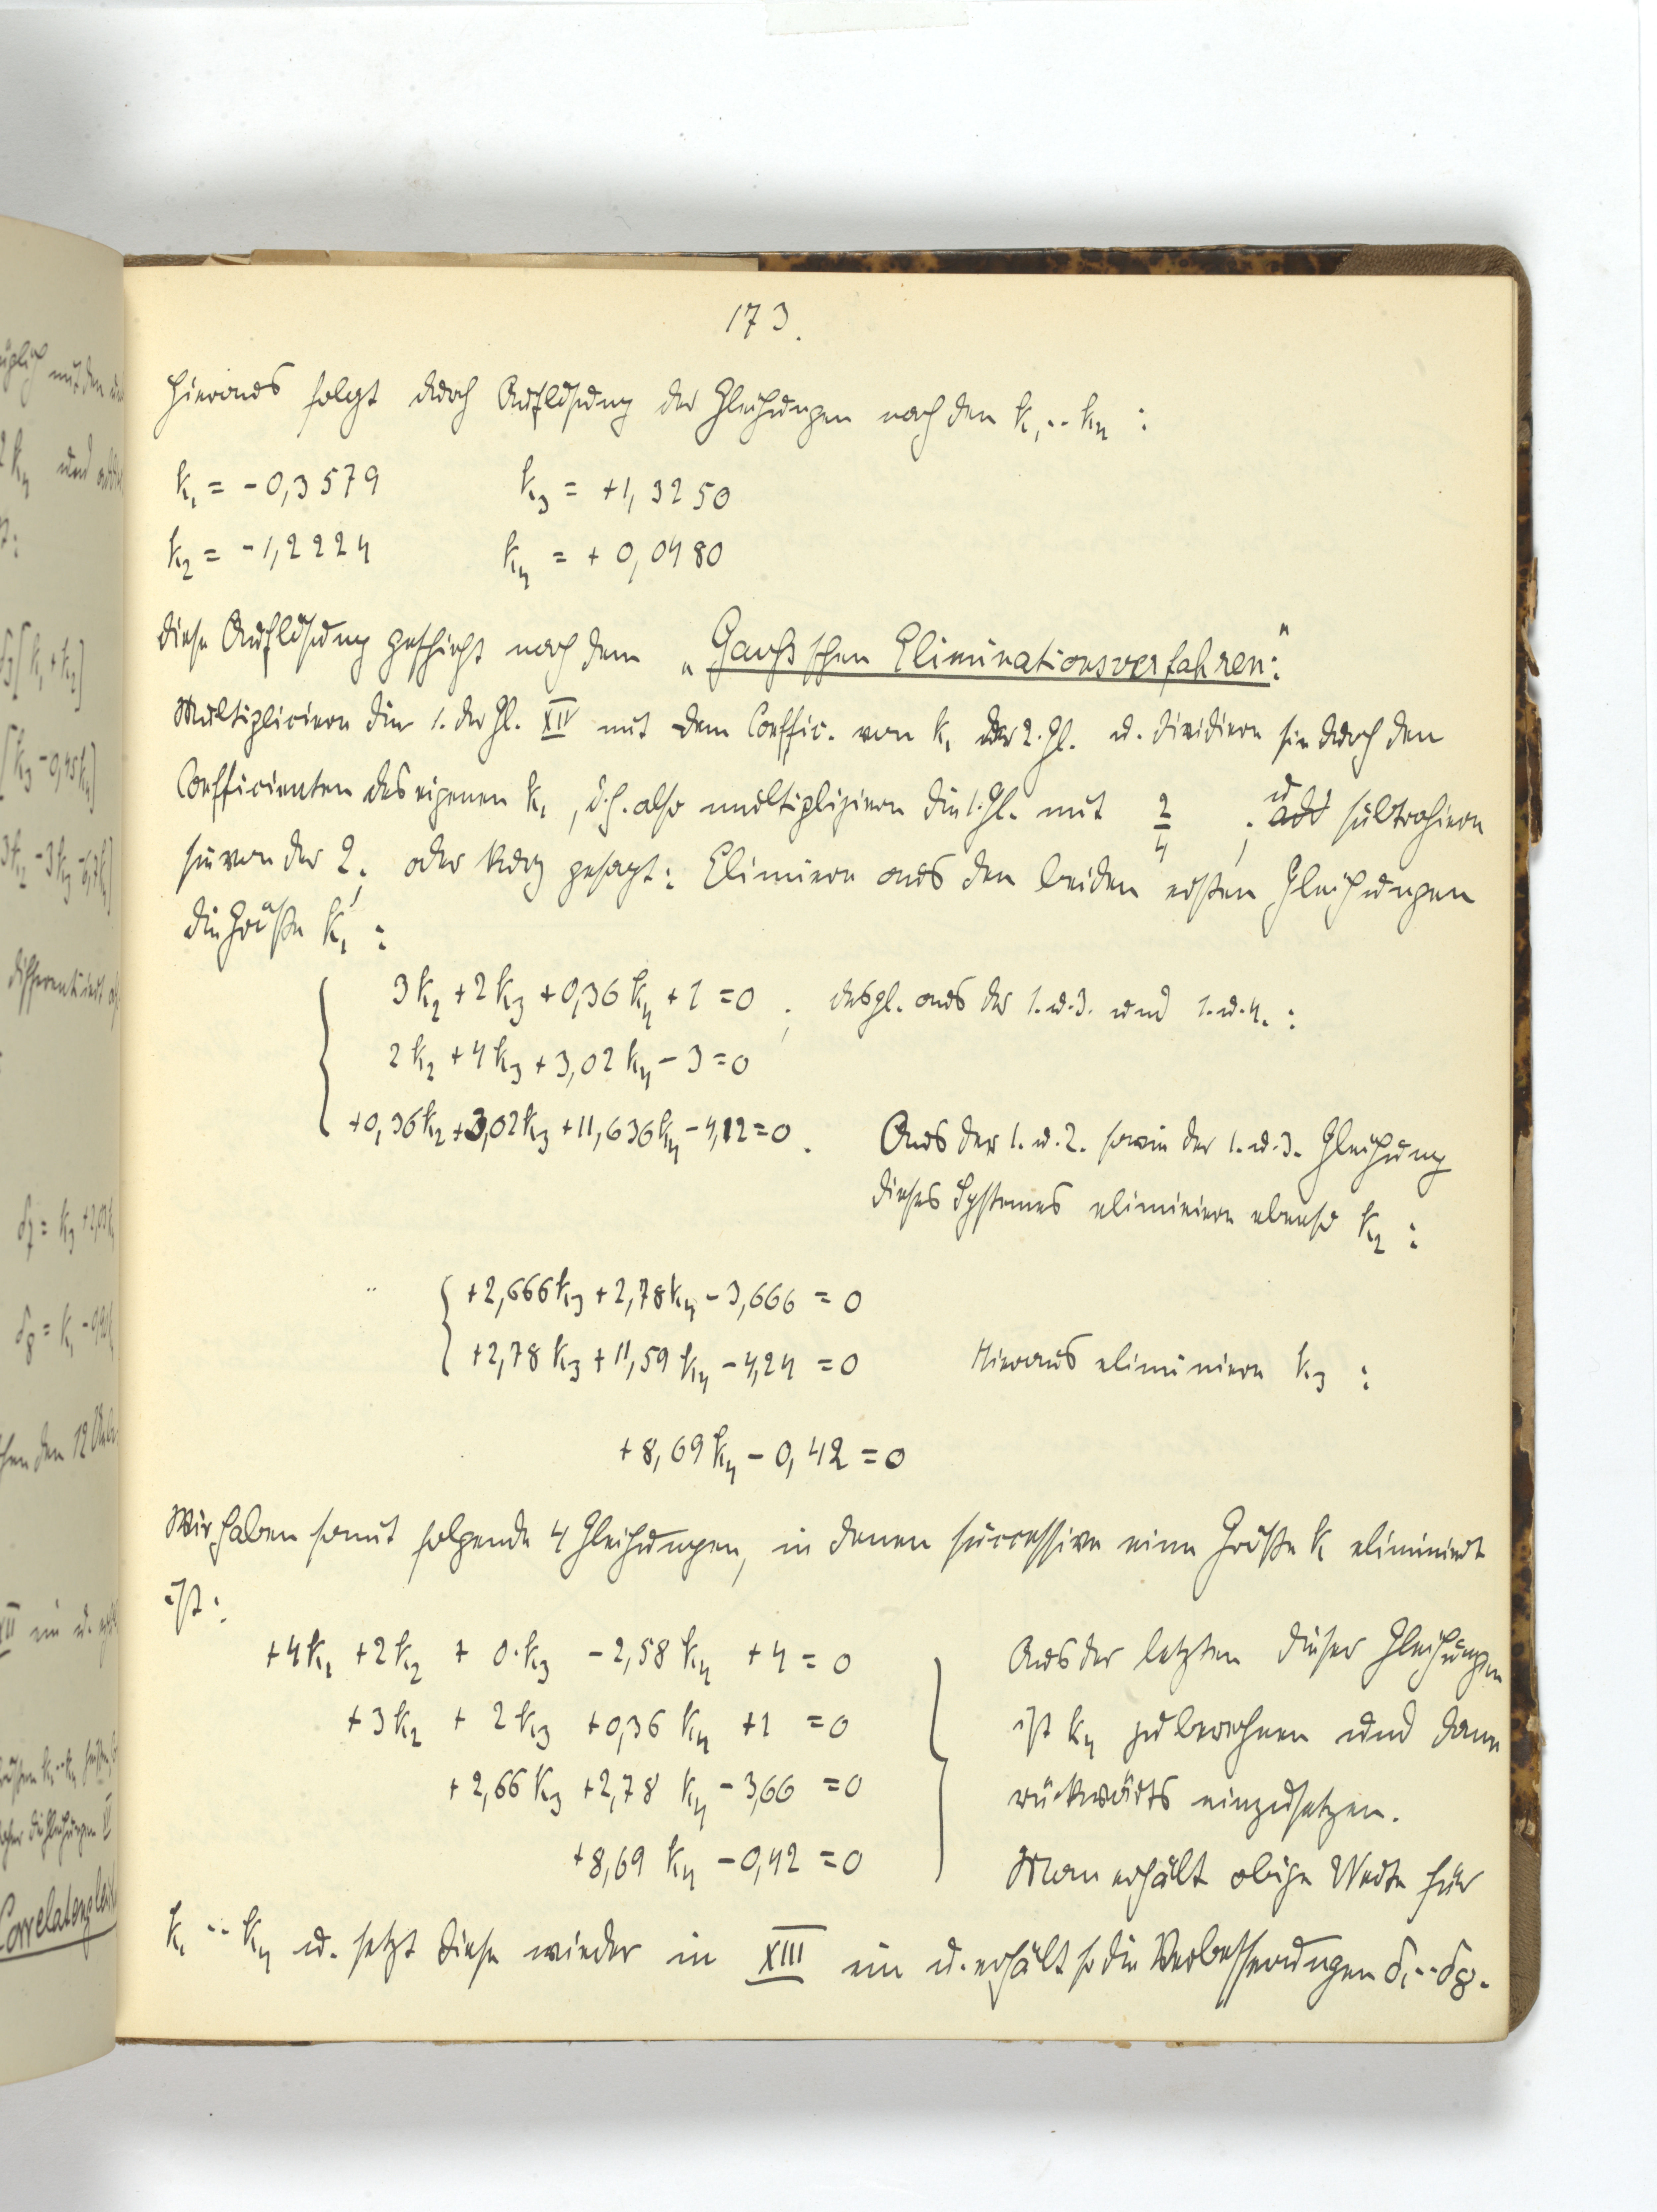 173.
Hieraus folgt durch Auflösung der Gleichungen nach den k₁..k₄ :
k₁ = -0,3579 k₃ = +1,3250
k₂ = -1,2224 k₄ = +0,0480
Diese Auflösung geschieht nach dem „Gauss'schen Eliminationsverfahren:"
Multiplicieren die 1. der Gl. XIV mit dem Coeffic. von k₁ der 2. Gl. u. dividieren sie durch den
Coefficienten des eigenen k₁, d.h. also multiplizieren die 1. Gl. mit 2/4 ; u. add subtrahieren
sie von der 2.; oder kurz gesagt: Elimieren aus den beiden ersten Gleichungen
die Größe k₁ :
3k₂ + 2k₃ + 0,36k₄ + 1 = 0 ; desgl. aus der 1. u. 3. und 1. u. 4. :
2k₂ + 4k₃ + 3,02k₄ - 3 = 0
+0,36k₂ + 3,02k₃ + 11,636k₄ - 4,12 = 0. Aus der 1. u. 2. sowie der 1. u. 3. Gleichung
dieses Systemes eliminieren ebenso k₂ :
+2,666k₃ + 2,78k₄ - 3,666 = 0
+2,78k₃ + 11,59k₄ - 4,24 = 0 Hieraus eliminieren k₃ :
+8,69k₄ - 0,42 = 0
Wir haben somit folgende 4 Gleichungen, in denen successive eine Größe k eliminiert
ist:
+4k₁ + 2k₂ + 0·k₃ - 2,58k₄ + 4 = 0 Aus der letzten dieser Gleichungen
+3k₂ + 2k₃ + 0,36k₄ + 1 = 0 ist k₄ zu berechnen und dann
+2,66k₃ + 2,78k₄ - 3,66 = 0 rückwärts einzusetzen.
+8,69k₄ - 0,42 = 0 Man erhält obige Werte für
k₁..k₄ u. setzt diese wieder in XIII ein u. erhält so die Verbesserungen δ₁..δ₈.